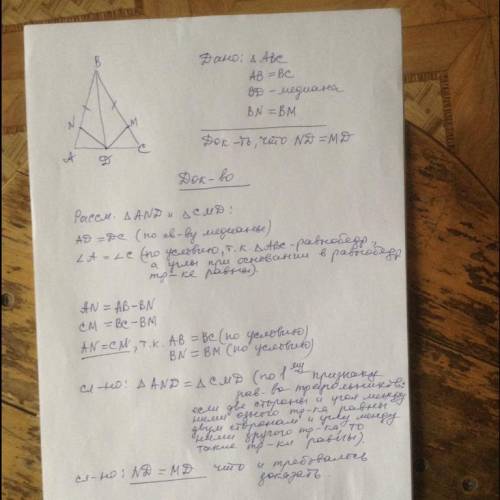 B
N
M
A
D
C
Дано: △ABC
AB = BC
BD – медиана
BN = BM
Док-ть, что ND = MD
Док-во
Рассм. △AND и △CMD:
AD = DC (по св-ву медианы)
∠A = ∠C (по условию, т.к. △ABC - равнобедр,
а углы при основании в равнобедр
тр-ке равны).
AN = AB - BN
CM = BC - BM
AN = CM, т.к. AB = BC (по условию)
BN = BM (по условию)
сл-но: △AND = △CMD (по 1му признаку
рав-ва треугольников:
если две стороны и угол между
ними одного тр-ка равны
двум сторонам и углу между
ними другого тр-ка, то
такие тр-ки равны).
сл-но: ND = MD что и требовалось
доказать.